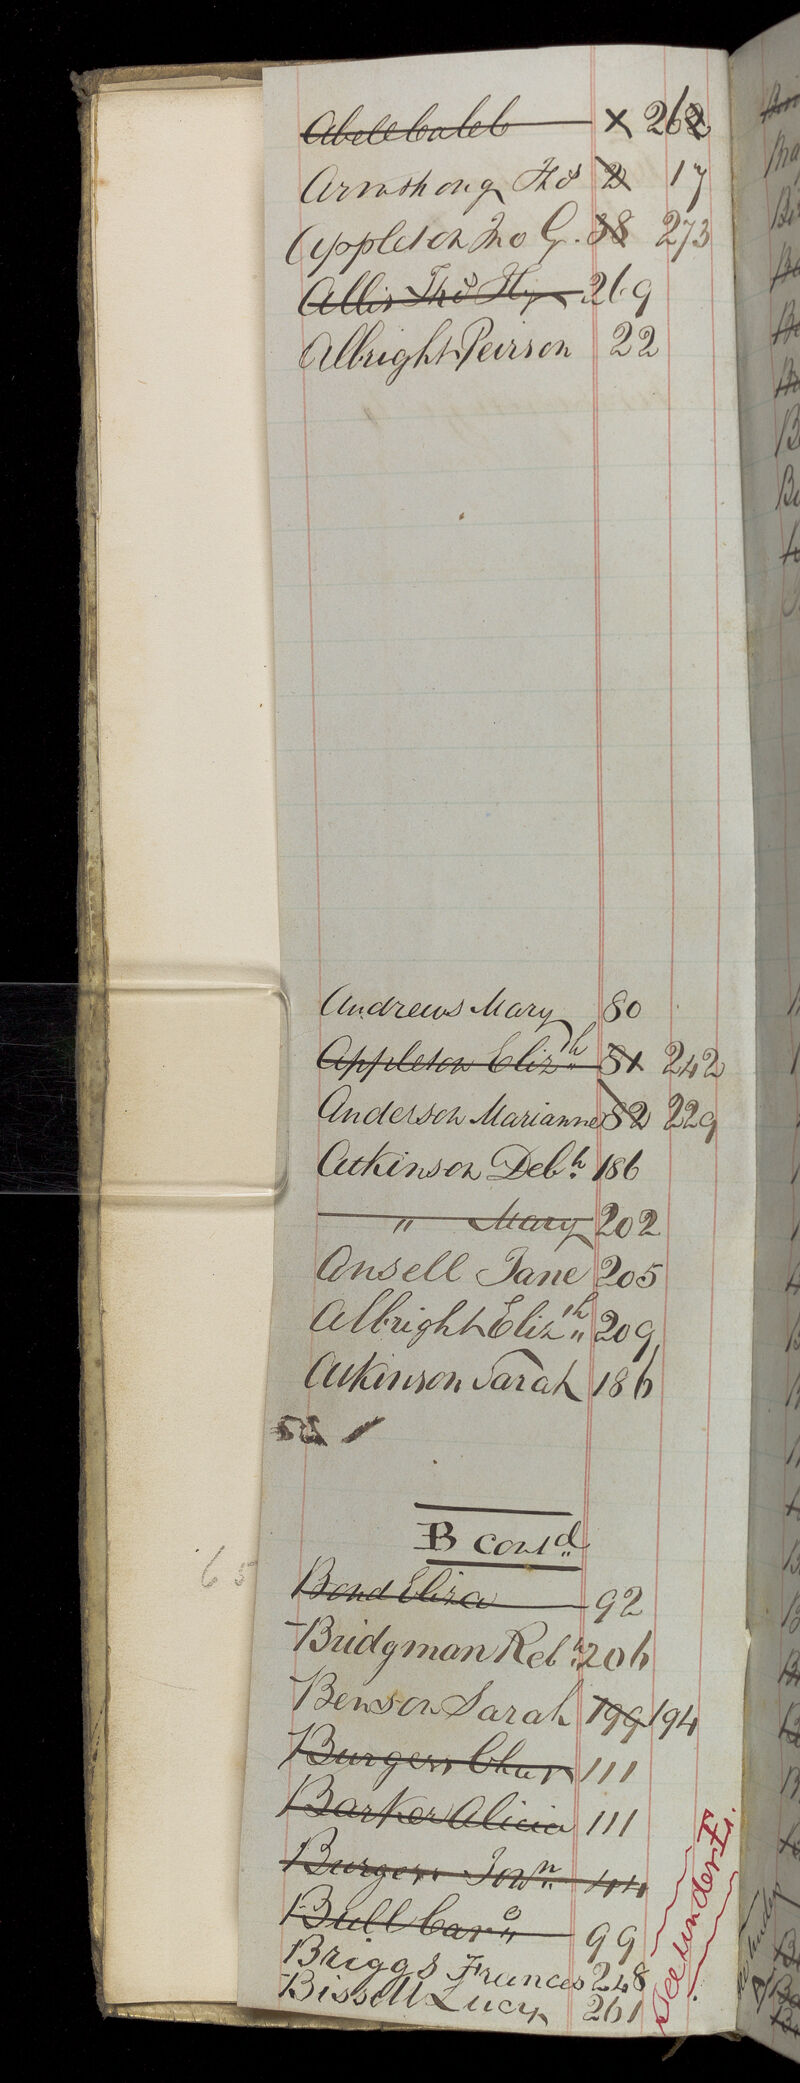 Abell Caleb X 262
Armstrong Thos 2 17
Appleton Jno G. 38 273
Allis Thos Hy 269
Albright Peirson 22
Andrews Mary 80
Appleton Elizth 81 242
Anderson Marianne 82 229
Atkinson Debh 186
" Mary 202
Ansell Jane 205
Albright Elizth 209
Atkinson Sarah 186
B contd
Bond Eliza 92
Bridgman Rebh 206
Benson Sarah 199 194
Burgess Char 111
Barker Alicia 111
Burgess 44
Bull Caro 99
Briggs Frances 248
Bissell Lucy 261
See under
65